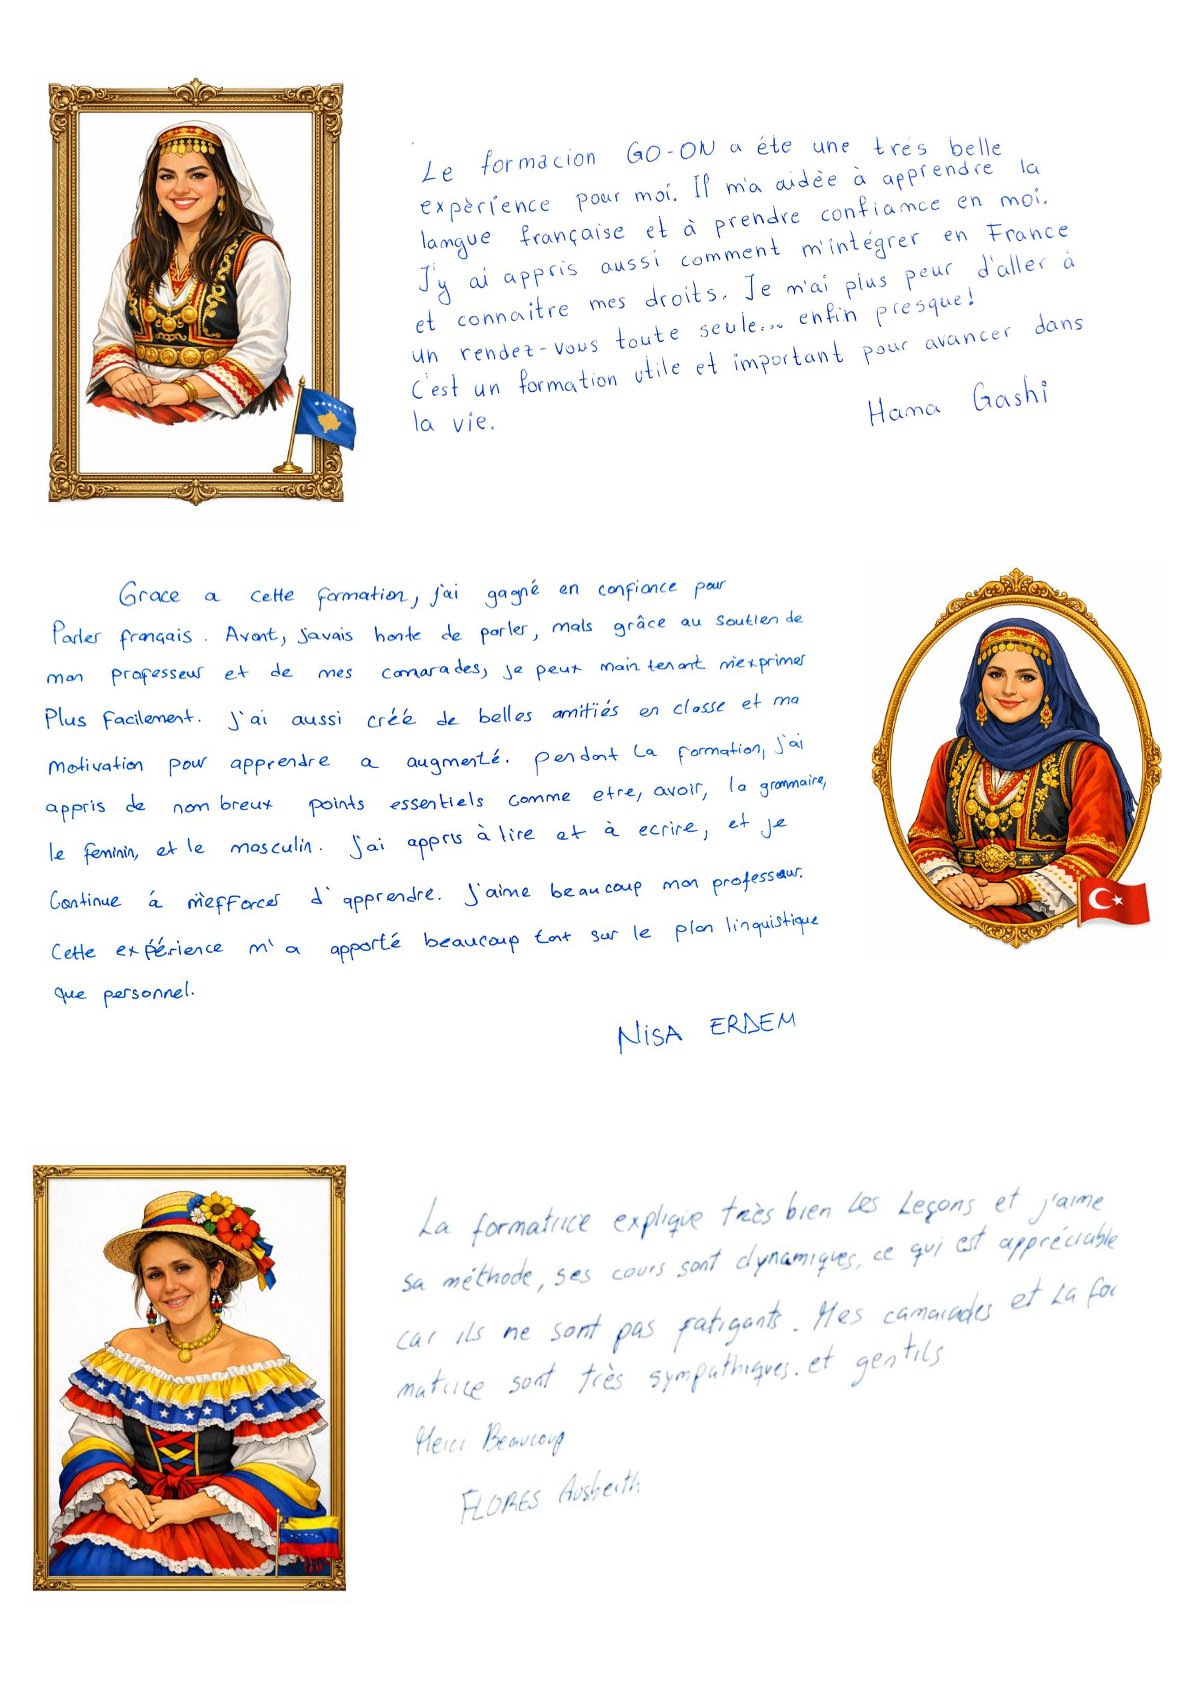 Le formacion GO-ON a éte une trés belle
expèrience pour moi. Il m'a aidèe à apprendre la
langue française et à prendre confiance en moi.
J'y ai appris aussi comment m'intégrer en France
et connaitre mes droits. Je m'ai plus peur d'aller à
un rendez-vous toute seule... enfin presque!
C'est un formation utile et important pour avancer dans
la vie.
Hama Gashi
Grace a cette formation, j'ai gagné en confiance pour
Parler français. Avant, j'avais honte de parler, mais grâce au soutien de
mon professeur et de mes camarades, je peux maintenant m'exprimer
Plus Facilement. J'ai aussi créé de belles amitiés en classe et ma
motivation pour apprendre a augmenté. Pendant La formation, j'ai
appris de nombreux points essentiels comme etre, avoir, la grammaire,
le feminin, et le masculin. J'ai appris à lire et à ecrire, et je
Continue á m'efforcer d'apprendre. J'aime beaucoup mon professeur.
Cette expérience m'a apporté beaucoup tant sur le plan linguistique
que personnel.
NiSA ERDEM
La formatrice explique très bien Les Leçons et j'aime
sa méthode, ses cours sont dynamiques, ce qui est appréciable
car ils ne sont pas fatigants. Mes camarades et La for
matrice sont très sympathiques. et gentils
Merci Beaucoup
FLORES Ausbeith